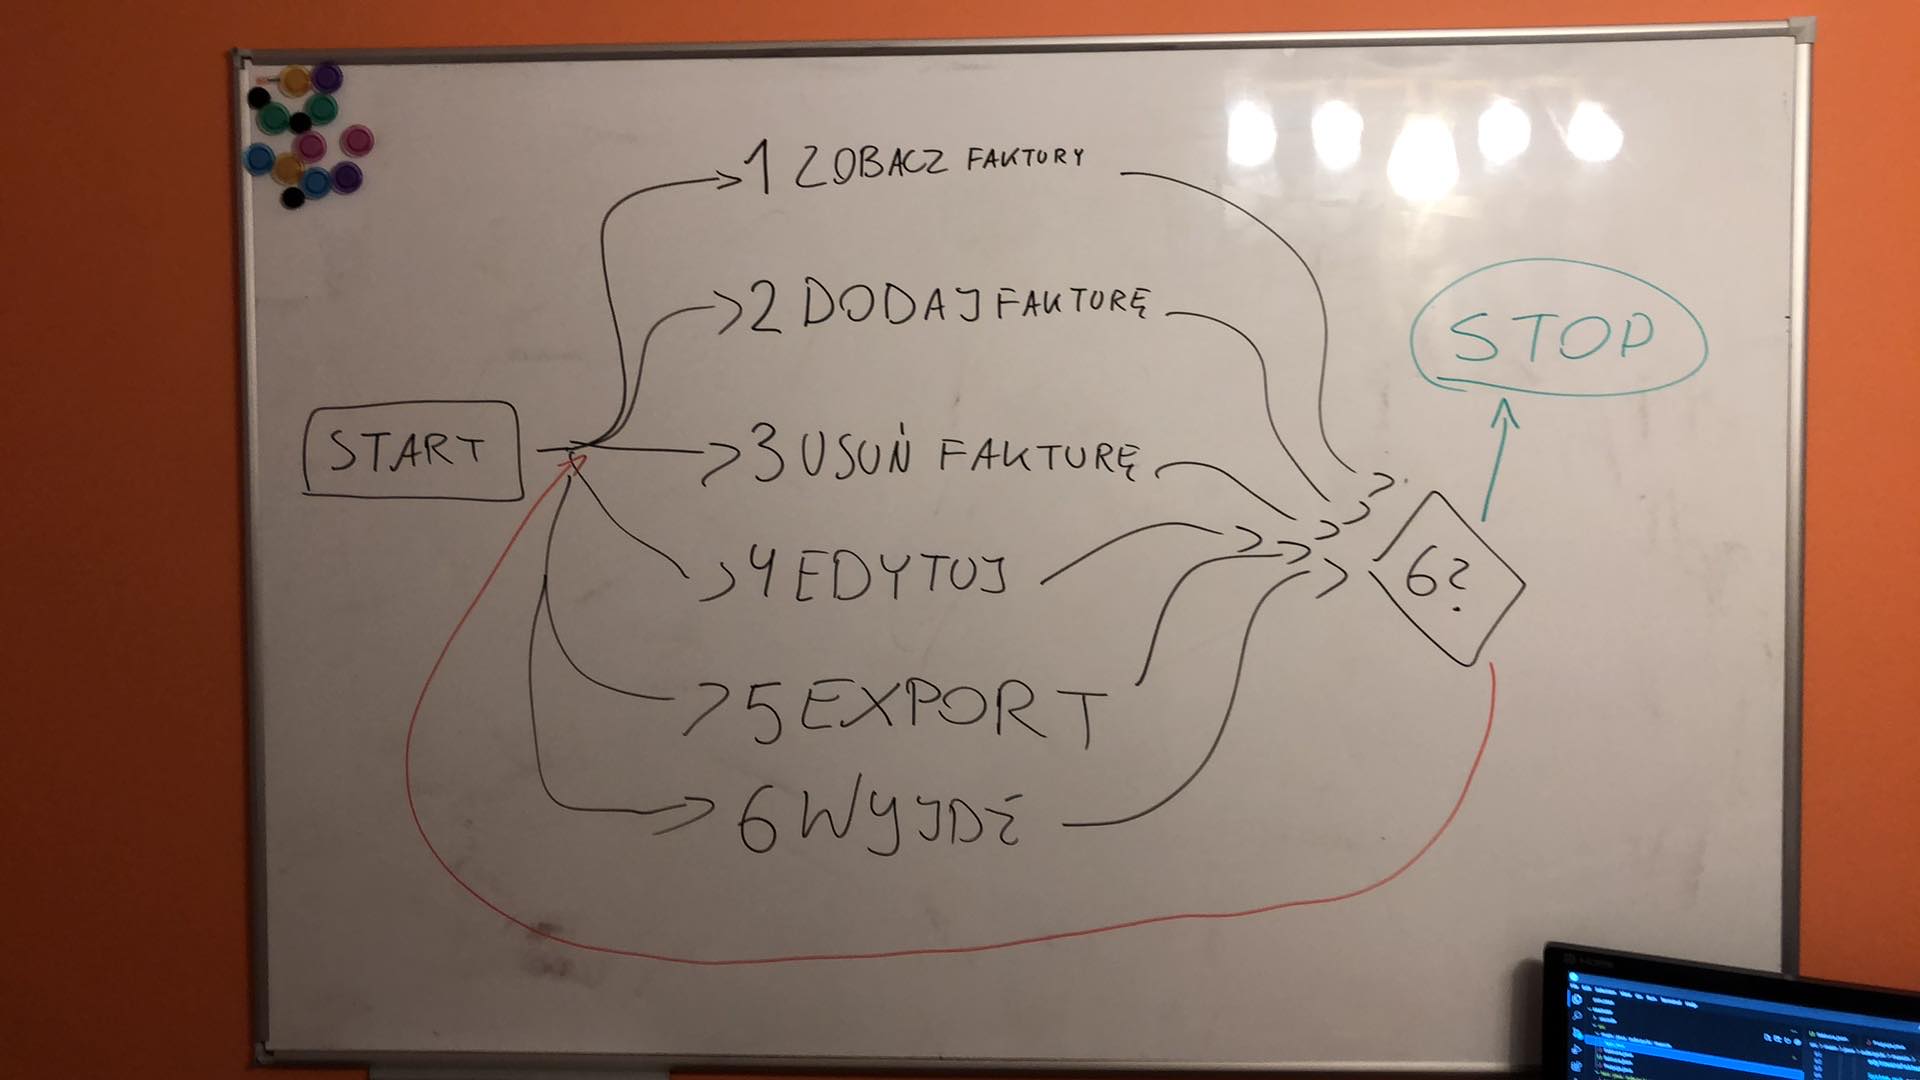 1 ZOBACZ FAKTORY
2 DODAJ FAKTORĘ
START
3 USUŃ FAKTURĘ
4 EDYTUJ
5 EXPORT
6 WYJDŹ
6?
STOP